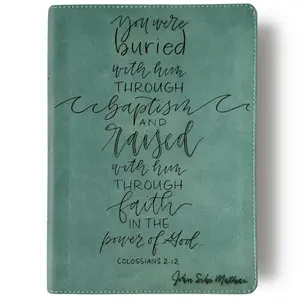 You were
buried
with him
THROUGH
baptism
AND
raised
with him
THROUGH
faith
IN THE
power of God
COLOSSIANS 2:12
John Siku Mathai